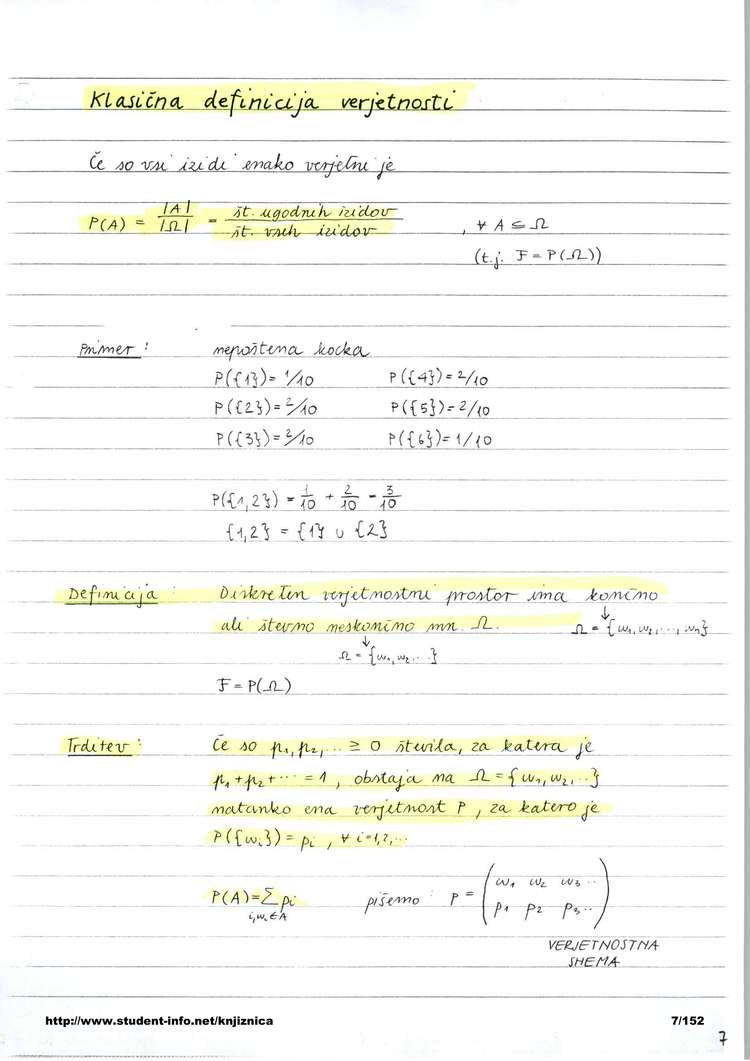 Klasična definicija verjetnosti
Če so vsi izidi enako verjetni je
P(A) = |A| / |Ω| = št. ugodnih izidov / št. vseh izidov , ∀ A ⊆ Ω
(t.j. F = P(Ω))
Primer : nepoštena kocka
P({1}) = 1/10 P({4}) = 2/10
P({2}) = 2/10 P({5}) = 2/10
P({3}) = 2/10 P({6}) = 1/10
P({1,2}) = 1/10 + 2/10 = 3/10
{1,2} = {1} ∪ {2}
Definicija : Diskreten verjetnostni prostor ima končno
ali števno neskončno mn. Ω. Ω = {ω₁, ω₂, ..., ωₙ}
Ω = {ω₁, ω₂, ...}
F = P(Ω)
Trditev : Če so p₁, p₂, ... ≥ 0 števila, za katera je
p₁ + p₂ + ... = 1 , obstaja na Ω = {ω₁, ω₂, ...}
natanko ena verjetnost P , za katero je
P({ωᵢ}) = pᵢ , ∀ i = 1, 2, ...
P(A) = Σ pᵢ pišemo : P = ( ω₁ ω₂ ω₃ ..
i, ωᵢ ∈ A p₁ p₂ p₃ .. )
VERJETNOSTNA
SHEMA
http://www.student-info.net/knjiznica 7/152
7